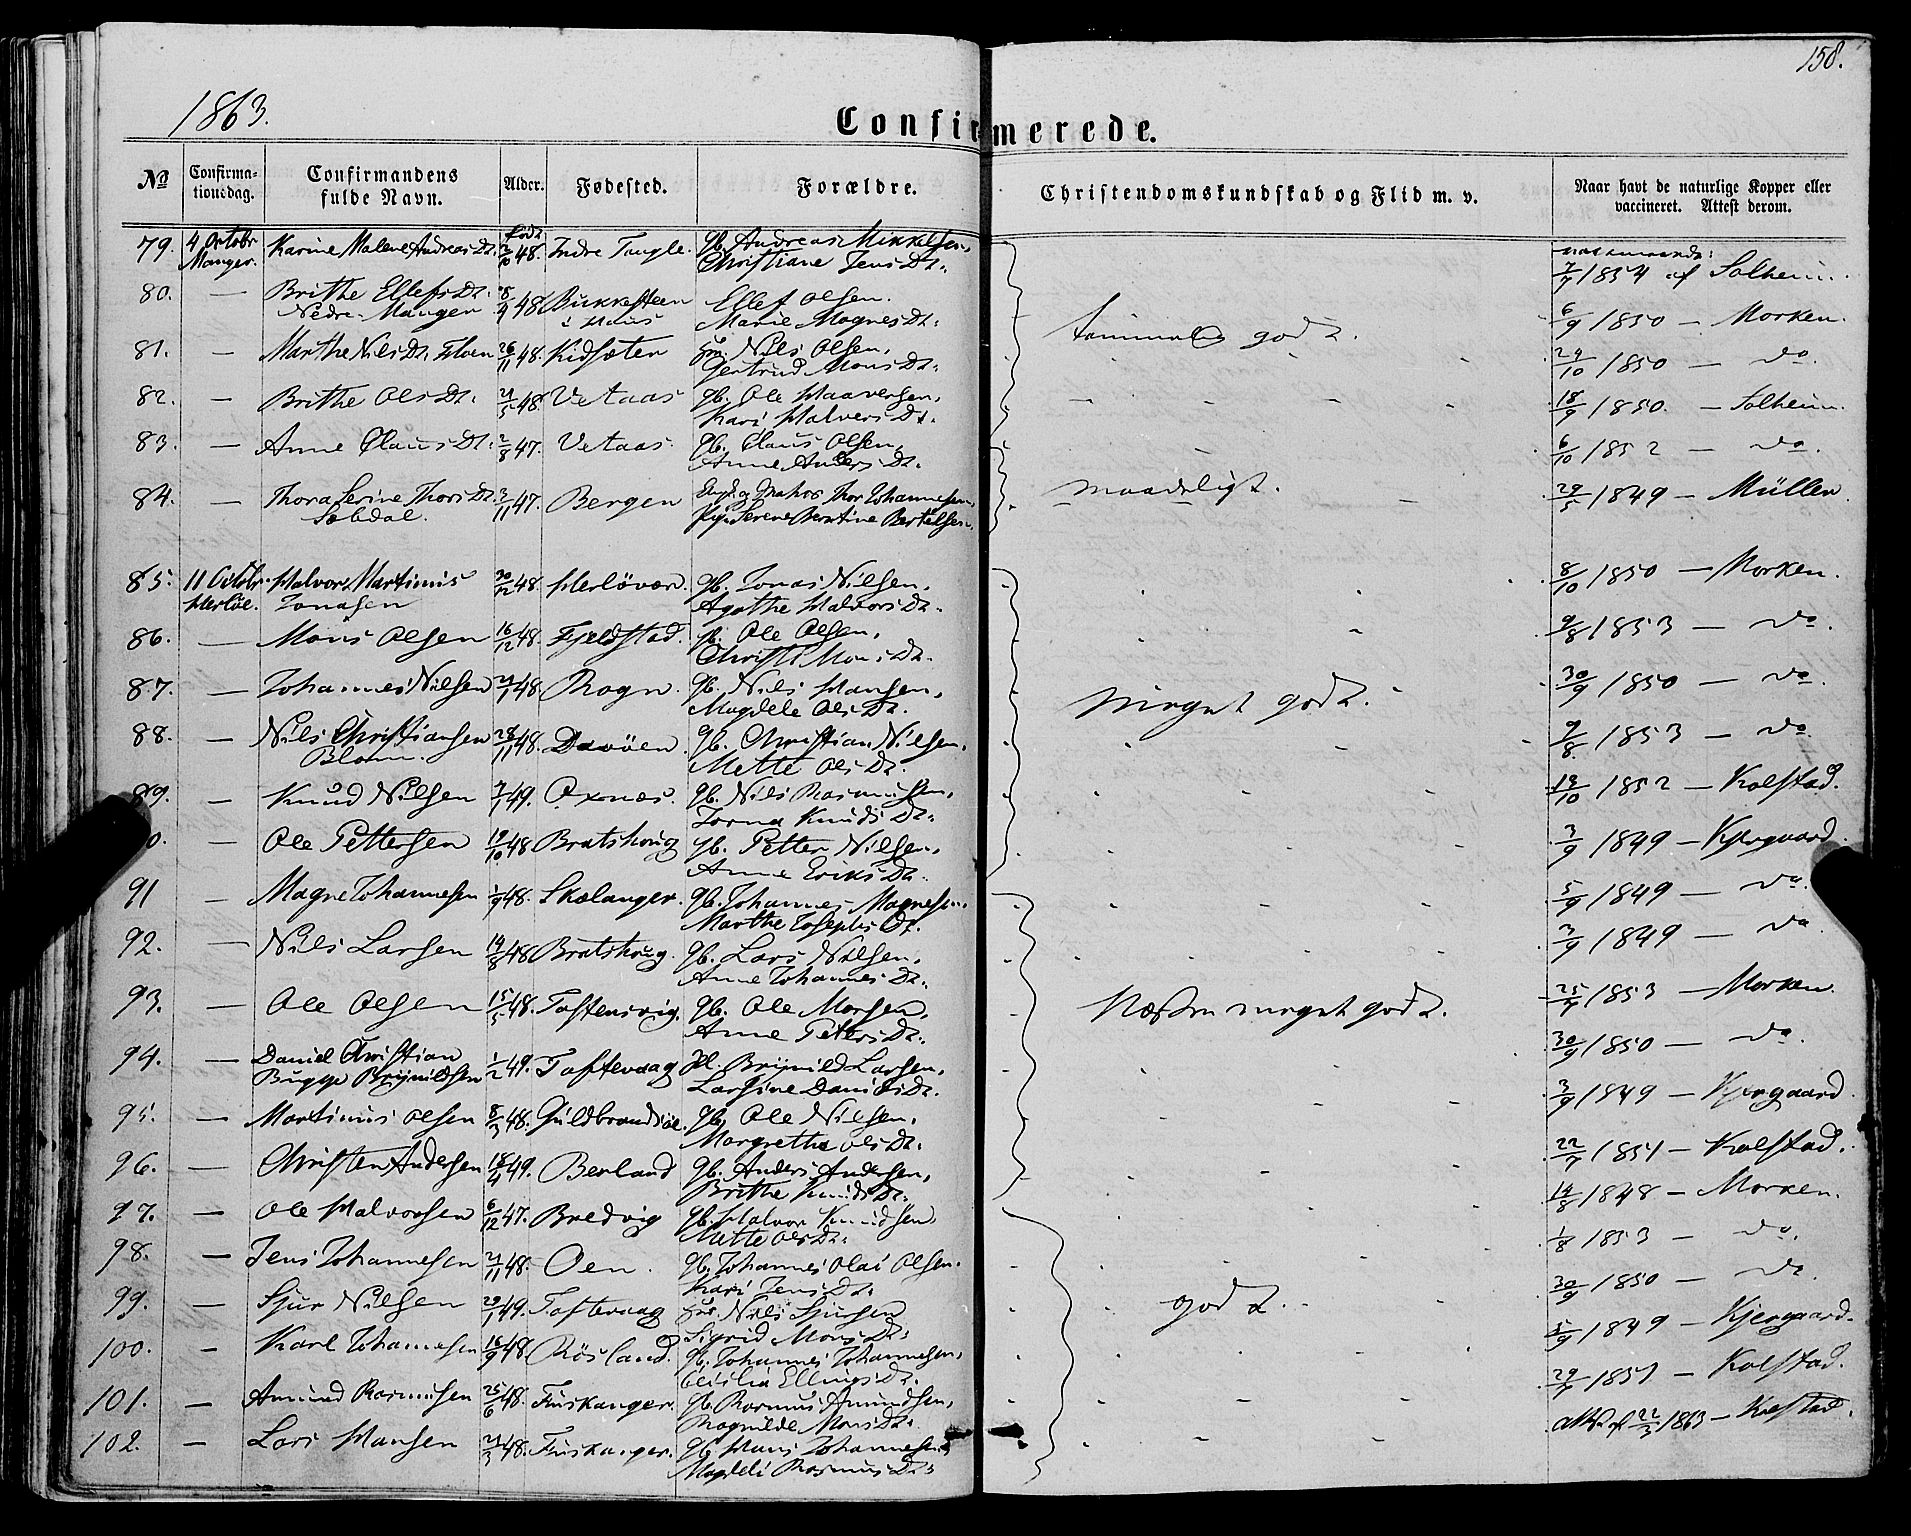 158.
1863.
Confirmerede.
No
Confirma-
tionsdag.
Confirmandens
fulde Navn.
Alder.
Fødested.
Forældre.
Christendomskundskab og Flid m. v.
Naar havt de naturlige Kopper eller
vaccineret. Attest derom.
79. 4 Octobr Karine Malene Andreas Dt. 2/10 48. Indre Tangle. Gb. Andreas Mikkelsen,
Manger. Christiane Jens Dt. 7/7 1854 af Solheim.
80. — Brithe Ellefs Dt. 28/4 48 Bukkesteen Ellef Olsen.
Nedre Manger i Haus Marie Magnes Dt. temmel godt. 6/9 1850 — Morken.
81. — Marthe Nils Dt. 26/11 48. Kidsæter Nils Olsen,
Gertrud Mons Dt. 29/10 1850 — do.
82. — Brithe Ols Dt. 21/5 48. Vetaas Gb. Ole Haaversen,
Kari Halvors Dt. 18/9 1850. — Solheim.
83. — Anne Claus Dt. 2/8 47. Vetaas. Gb. Claus Olsen,
Anne Anders Dt. 6/10 1852 — do.
84. — Thora Serine Thors Dt. 3/11 47. Bergen Thor Johannesen,
Sæbdal. Serene Berntine Bertelsen. maadeligt. 29/5 1849 — Müller.
85. 11 Octobr. Halvor Martinus 30/12 48. Herløvær. Gb. Jonas Nilsen,
Herløe. Jonasen Agathe Halvors Dt. 8/10 1850 — Morken.
86. — Mons Olsen 16/12 48. Fjeldstad. Gb. Ole Olsen,
Christi Mons Dt. 9/8 1853 — do.
87. — Johannes Nilsen 21/1 48. Rogn. Gb. Nils Hansen,
Magdele Ols Dt. meget godt. 30/9 1850 — do
88. — Nils Christiansen 28/11 48. Davöen. Gb. Christian Nilsen,
Blom. Mette Ols Dt. 9/8 1853 — do
89. — Knud Nilsen 7/1 49. Oxnæs. Gb. Nils Rasmussen,
Knuds Dt. 19/10 1852 — Kolstad.
0. — Ole Pettersen 19/10 48 Bratshoug Gb. Petter Nilsen,
Anne Eriks Dt. 3/9 1849 — Kjergaard.
91 — Magne Johannesen 1/9 48. Skælanger. Gb. Johannes Magnesen,
Marthe Josephs Dt. 5/9 1849 — do.
92. — Nils Larsen 14/8 48 Bratshoug. Gb. Lars Nilsen,
Anne Johannes Dt. 3/9 1849 — do
93. — Ole Olsen 15/5 48. Toftensvig. Gb. Ole Morsen,
Anne Peters Dt. Næsten meget godt. 25/7 1853 — Morken.
94. — Daniel Christian 1/2 49. Toftevaag Brynild Larsen,
Bugge Brynildsen Larsine Daniels Dt. 30/9 1850 — do
95. — Martinus Olsen 8/3 48. Guldbrandsöe. Gb. Ole Nilsen,
Margrethe Ols Dt. 3/9 1849 — Kjergaard.
96. — Christen Andersen 18/4 49. Berland Gb. Anders Andersen,
Brithe Knuds Dt. 22/7 1851 — Kolstad.
97. — Ole Halvorsen 6/12 47. Bredvig Gb. Halvor Knudsen,
Mette Ols Dt. 14/8 1848 — Morken.
98. — Jens Johannesen 21/11 48. Oen. Gb. Johannes Olai Olsen.
Kari Jens Dt. 1/8 1853 — do.
99. — Sjur Nilsen 29/1 49. Toftevaag Nils Sjursen
Sigrid Mons Dt. godt. 30/9 1850 — do
100. — Karl Johannesen 16/9 48. Rösland. Gb. Johannes Johannesen,
Cecilia Ellings Dt. 5/9 1849 — Kjergaard.
101. — Amund Rasmussen 25/6 48. Tuskanger. Gb. Rasmus Amundsen,
Ragnilde Mons Dt. 29/7 1851 — Kolstad.
102. — Lars Hansen 21/3 48. Tuskanger. Gb. Hans Johannesen
Magdeli Rasmus Dt. Att. af 22/3 1863 — Kolstad.